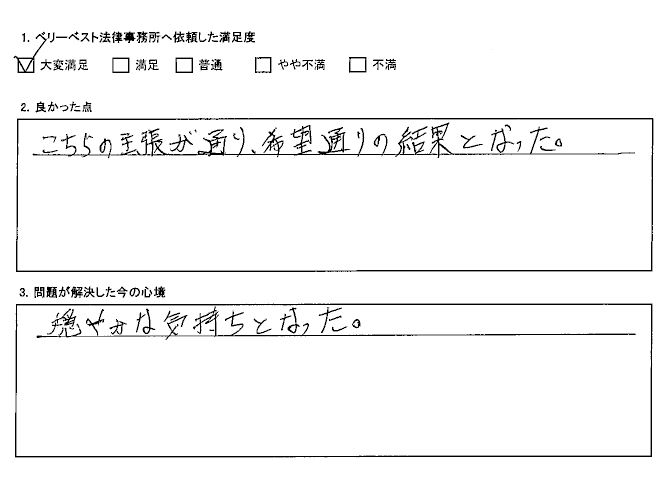 1. ベリーベスト法律事務所へ依頼した満足度
☑ 大変満足 □ 満足 □ 普通 □ やや不満 □ 不満
2. 良かった点
こちらの主張が通り、希望通りの結果となった。
3. 問題が解決した今の心境
穏やかな気持ちとなった。